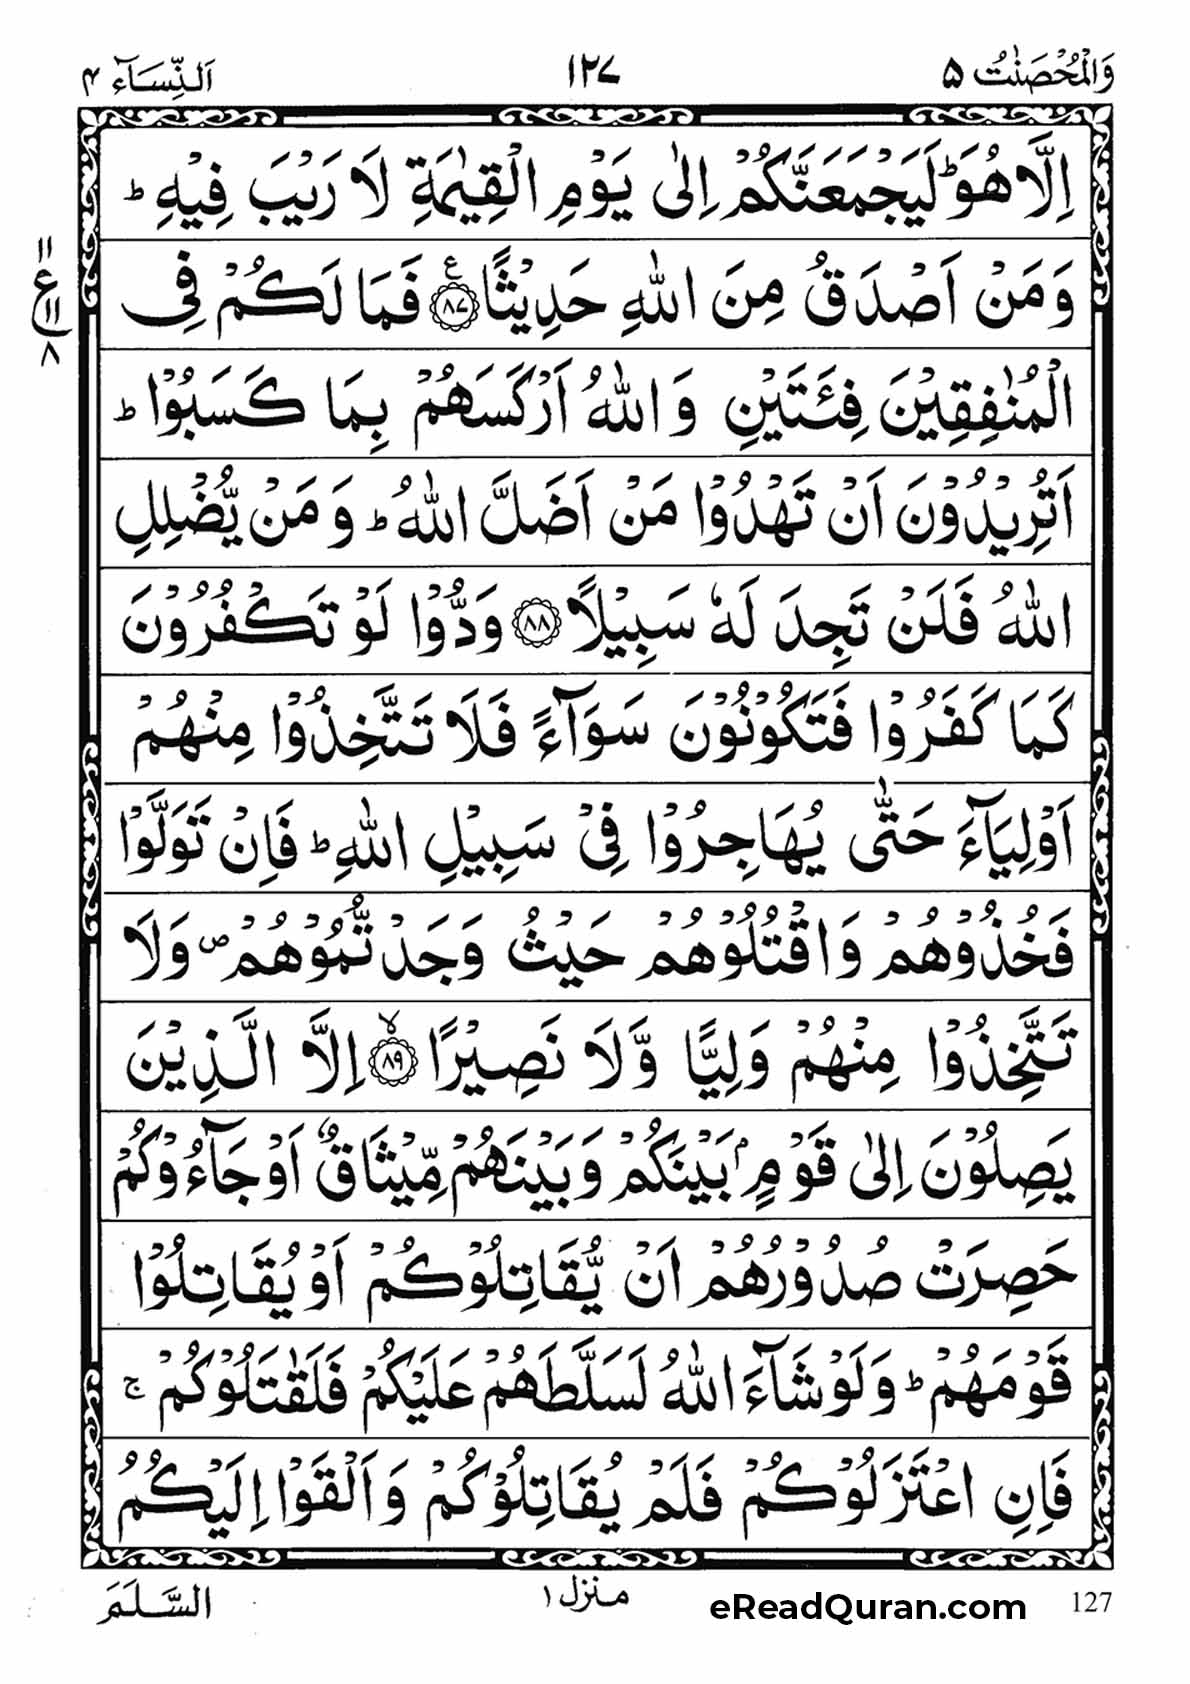 وَالْمُحْصَنٰتُ ۵
۱۲۷
اَلنِّسَآء ۴
اِلَّا هُوَ ؕ لَيَجْمَعَنَّكُمْ اِلٰى يَوْمِ الْقِيٰمَةِ لَا رَيْبَ فِيْهِ ؕ
وَمَنْ اَصْدَقُ مِنَ اللّٰهِ حَدِيْثًا ۟ع ﴿۸۷﴾ فَمَا لَكُمْ فِى
۱۱
ع
۱۱
۸
الْمُنٰفِقِيْنَ فِئَتَيْنِ وَاللّٰهُ اَرْكَسَهُمْ بِمَا كَسَبُوْا ؕ
اَتُرِيْدُوْنَ اَنْ تَهْدُوْا مَنْ اَضَلَّ اللّٰهُ ؕ وَمَنْ يُّضْلِلِ
اللّٰهُ فَلَنْ تَجِدَ لَهٗ سَبِيْلًا ﴿۸۸﴾ وَدُّوْا لَوْ تَكْفُرُوْنَ
كَمَا كَفَرُوْا فَتَكُوْنُوْنَ سَوَآءً فَلَا تَتَّخِذُوْا مِنْهُمْ
اَوْلِيَآءَ حَتّٰى يُهَاجِرُوْا فِىْ سَبِيْلِ اللّٰهِ ؕ فَاِنْ تَوَلَّوْا
فَخُذُوْهُمْ وَاقْتُلُوْهُمْ حَيْثُ وَجَدْتُّمُوْهُمْ ص وَلَا
تَتَّخِذُوْا مِنْهُمْ وَلِيًّا وَّلَا نَصِيْرًا ۙ ﴿۸۹﴾ اِلَّا الَّذِيْنَ
يَصِلُوْنَ اِلٰى قَوْمٍۢ بَيْنَكُمْ وَبَيْنَهُمْ مِّيْثَاقٌ اَوْ جَآءُوْكُمْ
حَصِرَتْ صُدُوْرُهُمْ اَنْ يُّقَاتِلُوْكُمْ اَوْ يُقَاتِلُوْا
قَوْمَهُمْ ؕ وَلَوْ شَآءَ اللّٰهُ لَسَلَّطَهُمْ عَلَيْكُمْ فَلَقٰتَلُوْكُمْ ۚ
فَاِنِ اعْتَزَلُوْكُمْ فَلَمْ يُقَاتِلُوْكُمْ وَاَلْقَوْا اِلَيْكُمُ
السَّلَمَ
منزل ۱
eReadQuran.com
127